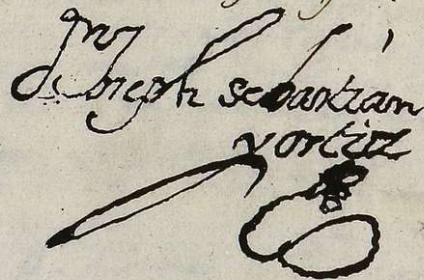 Joseph sebastian
y ortiz